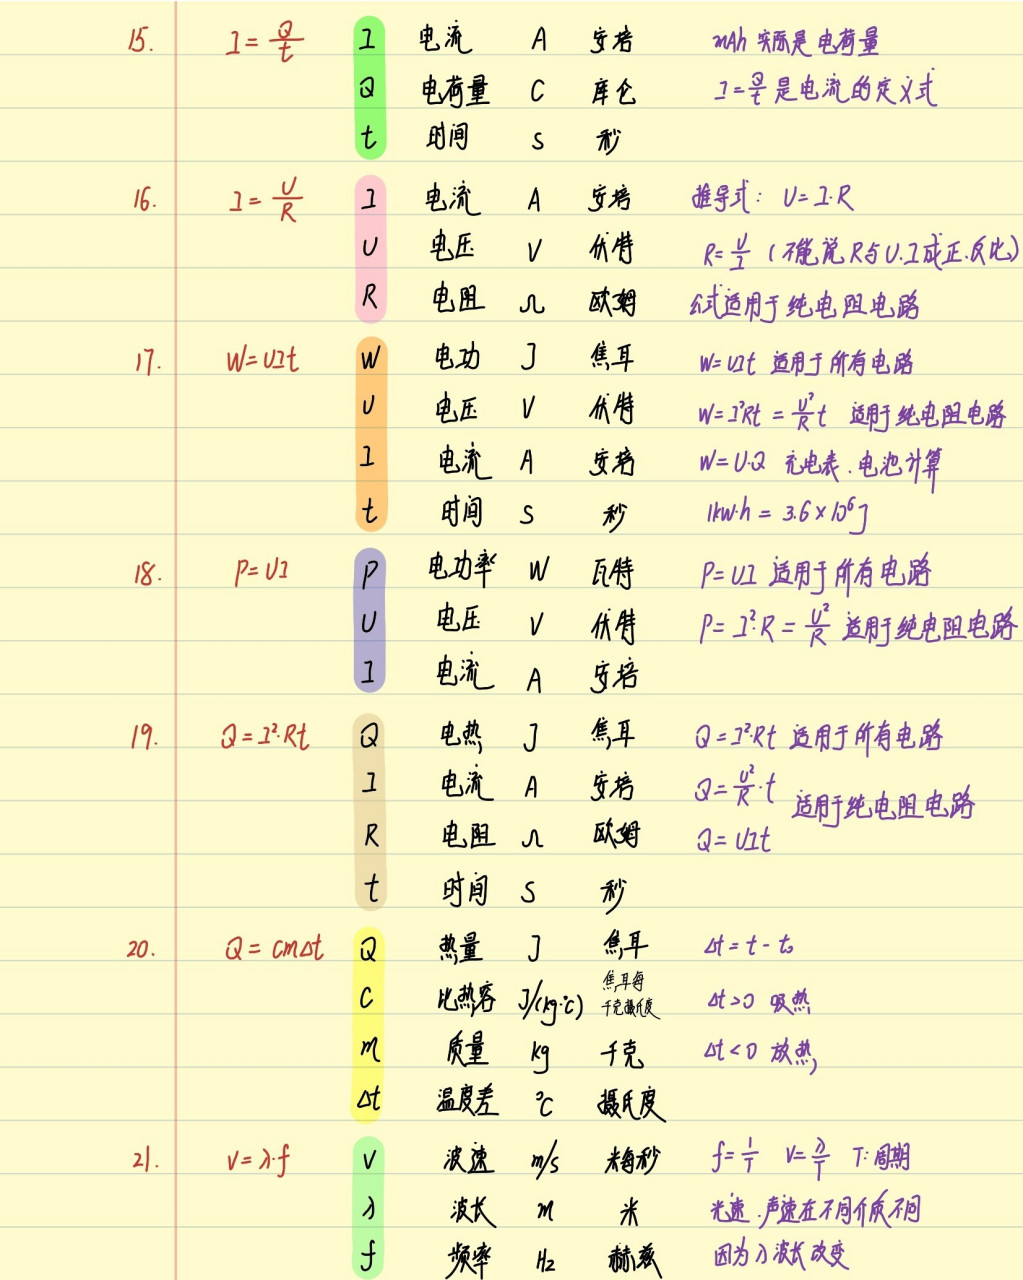 15. I=Q/t I 电流 A 安培 mAh 实际是电荷量
Q 电荷量 C 库仑 I=Q/t 是电流的定义式
t 时间 s 秒
16. I=U/R I 电流 A 安培 推导式: U=I·R
U 电压 V 伏特 R=U/I (不能说R与U.I成正.反比)
R 电阻 Ω 欧姆 公式适用于纯电阻电路
17. W=UIt W 电功 J 焦耳 W=UIt 适用于所有电路
U 电压 V 伏特 W=I²Rt=U²/R t 适用于纯电阻电路
I 电流 A 安培 W=U·Q 充电表.电池计算
t 时间 S 秒 1kw·h=3.6×10⁶J
18. P=UI P 电功率 W 瓦特 P=UI 适用于所有电路
U 电压 V 伏特 P=I²·R=U²/R 适用于纯电阻电路
I 电流 A 安培
19. Q=I²·Rt Q 电热 J 焦耳 Q=I²·Rt 适用于所有电路
I 电流 A 安培 Q=U²/R·t 适用于纯电阻电路
R 电阻 Ω 欧姆 Q=UIt
t 时间 S 秒
20. Q=cmΔt Q 热量 J 焦耳 Δt=t-t₀
C 比热容 J/(kg·℃) 焦耳每千克摄氏度 Δt>0 吸热
m 质量 kg 千克 Δt<0 放热
Δt 温度差 ℃ 摄氏度
21. V=λ·f V 波速 m/s 米每秒 f=1/T V=λ/T T:周期
λ 波长 m 米 光速.声速在不同介质不同
f 频率 Hz 赫兹 因为λ波长改变